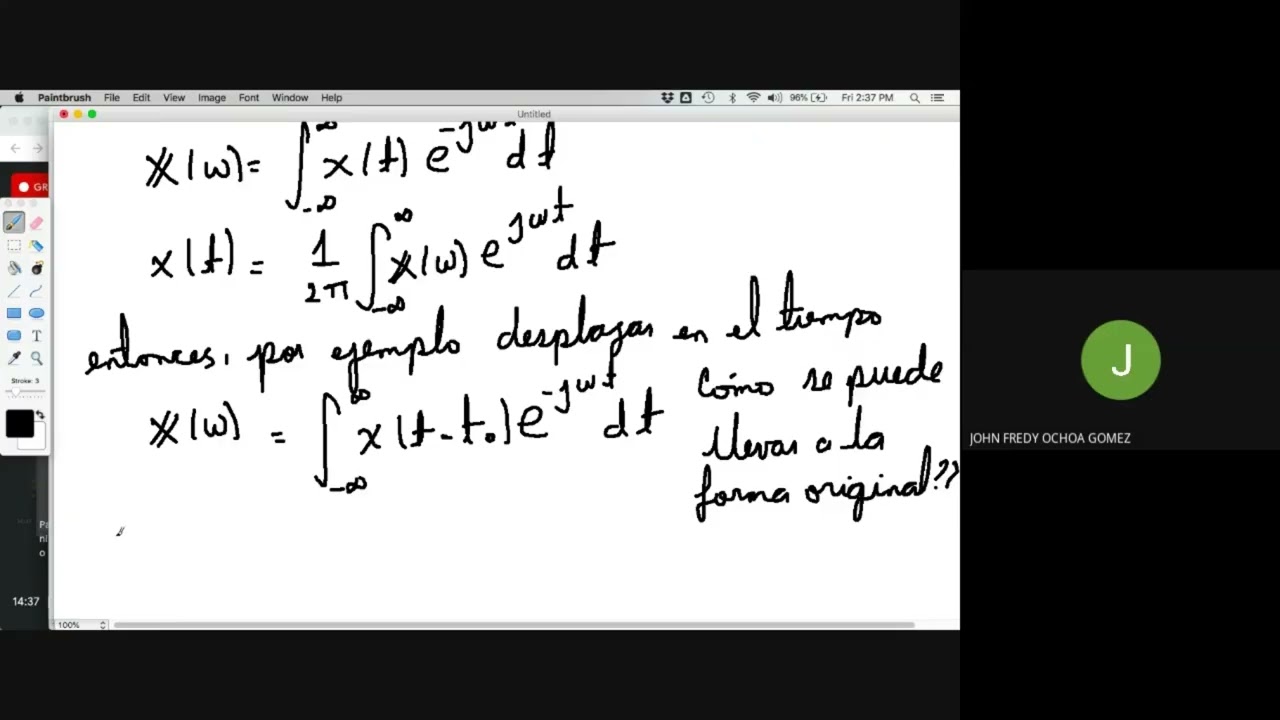 Paintbrush File Edit View Image Font Window Help 96% Fri 2:37 PM
Untitled
X(ω) = ∫_{-∞}^{∞} x(t) e^{-jωt} dt
x(t) = 1/2π ∫_{-∞}^{∞} X(ω) e^{jωt} dt
entonces, por ejemplo desplazar en el tiempo
X(ω) = ∫_{-∞}^{∞} x(t - t₀) e^{-jωt} dt
cómo se puede
llevar a la
forma original??
GR
Stroke: 3
14:37
100%
J
JOHN FREDY OCHOA GOMEZ